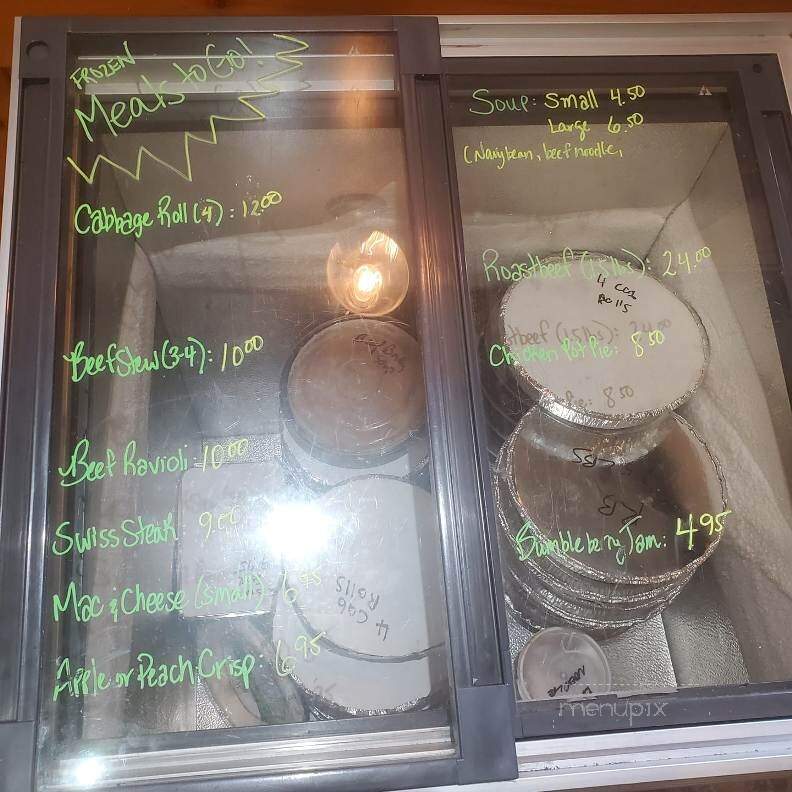 FROZEN
Meals to Go!
Cabbage Roll (4): 12.00
Beef Stew (3-4): 10.00
Beef Ravioli: 10.00
Swiss Steak 9.00
Mac & Cheese (small) 6.95
Apple or Peach Crisp: 6.95
4 CAB
ROLLS
Soup: Small 4.50
Large 6.50
(Navy bean, beef noodle,
Roastbeef (1.5 lbs): 24.00
4 CAB
ROLLS
Chicken Pot Pie: 8.50
Bumbleberry Jam: 4.95
menupix